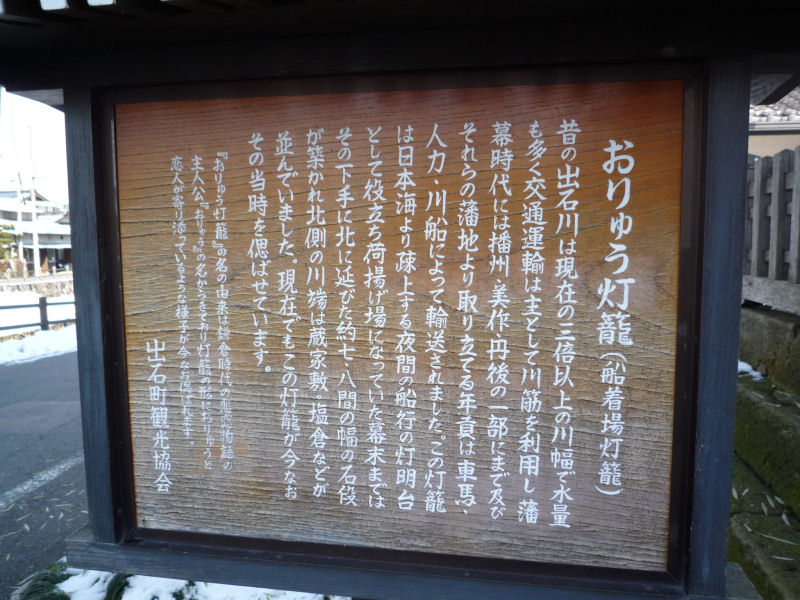 おりゅう灯籠(船着場灯籠)
昔の出石川は現在の三倍以上の川幅で水量
も多く交通運輸は主として川筋を利用し藩
幕時代には播州・美作・丹後の一部にまで及び
それらの藩地より取り立てる年貢は車馬・
人力・川船によって輸送されました。この灯籠
は日本海より疎上する夜間の船行の灯明台
として役立ち荷揚げ場になっていた幕末までは
その下手に北に延びた約七・八間の幅の石段
が築かれ北側の川端は蔵家敷・塩倉などが
並んでいました。現在でもこの灯籠が今なお
その当時を偲ばせています。
『おりゅう灯籠』の名の由来は鎌倉時代の悲恋物語の
主人公、『おりゅう』の名からきており灯籠の船におりゅうと
恋人が寄り添っているような様子が今なお偲ばれます。
出石町観光協会